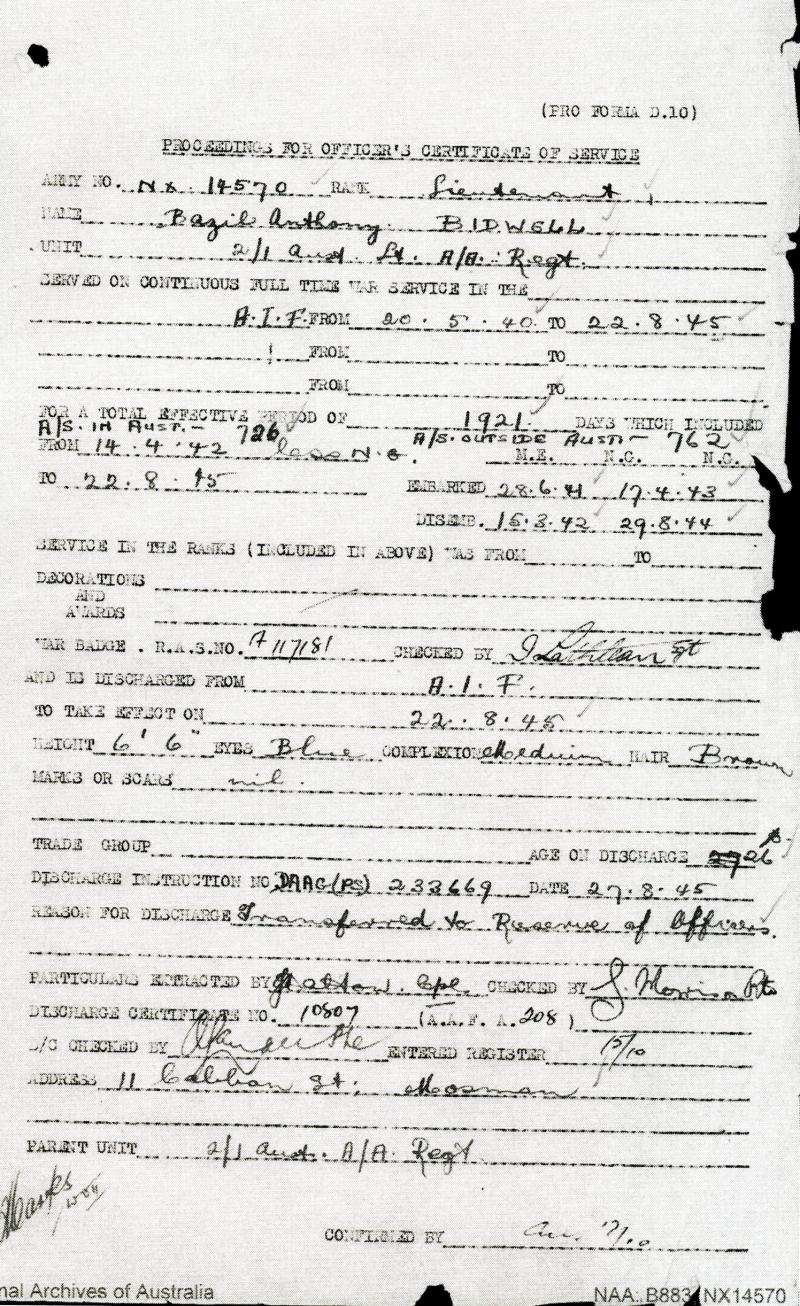 (PRO FORMA D.10)
PROCEEDINGS FOR OFFICER'S CERTIFICATE OF SERVICE
ARMY NO. NX. 14570 RANK Lieutenant
NAME Bazil Anthony BIDWELL
UNIT 2/1 Aust. Lt. A/A. Regt.
SERVED ON CONTINUOUS FULL TIME WAR SERVICE IN THE
A.I.F. FROM 20.5.40 TO 22.8.45
FROM TO
FROM TO
FOR A TOTAL EFFECTIVE PERIOD OF 1921 DAYS WHICH INCLUDED
A/S. IN AUST.- 726 A/S. OUTSIDE AUST.- 762
FROM 14.4.42 less N.G. M.E. N.G. N.G.
TO 22.8.45 EMBARKED 28.6.41 17.4.43
DISEMB. 15.3.42 29.8.44
SERVICE IN THE RANKS (INCLUDED IN ABOVE) WAS FROM TO
DECORATIONS
AND
AWARDS
WAR BADGE. R.A.S.NO. A117181 CHECKED BY Sgt
AND IS DISCHARGED FROM A.I.F.
TO TAKE EFFECT ON 22.8.45
HEIGHT 6' 6" EYES Blue COMPLEXION Medium HAIR Brown
MARKS OR SCARS nil.
TRADE GROUP AGE ON DISCHARGE 27 26
DISCHARGE INSTRUCTION NO. DAAG(PS) 233669 DATE 27.8.45
REASON FOR DISCHARGE Transferred to Reserve of Officers.
PARTICULARS EXTRACTED BY Cpl. CHECKED BY Pte
DISCHARGE CERTIFICATE NO. 10807 (A.A.F. A.208)
D/C CHECKED BY ENTERED REGISTER 15/10
ADDRESS 11 St. Mosman
PARENT UNIT 2/1 Aust. A/A. Regt
CONFIRMED BY
nal Archives of Australia NAA: B883, NX14570